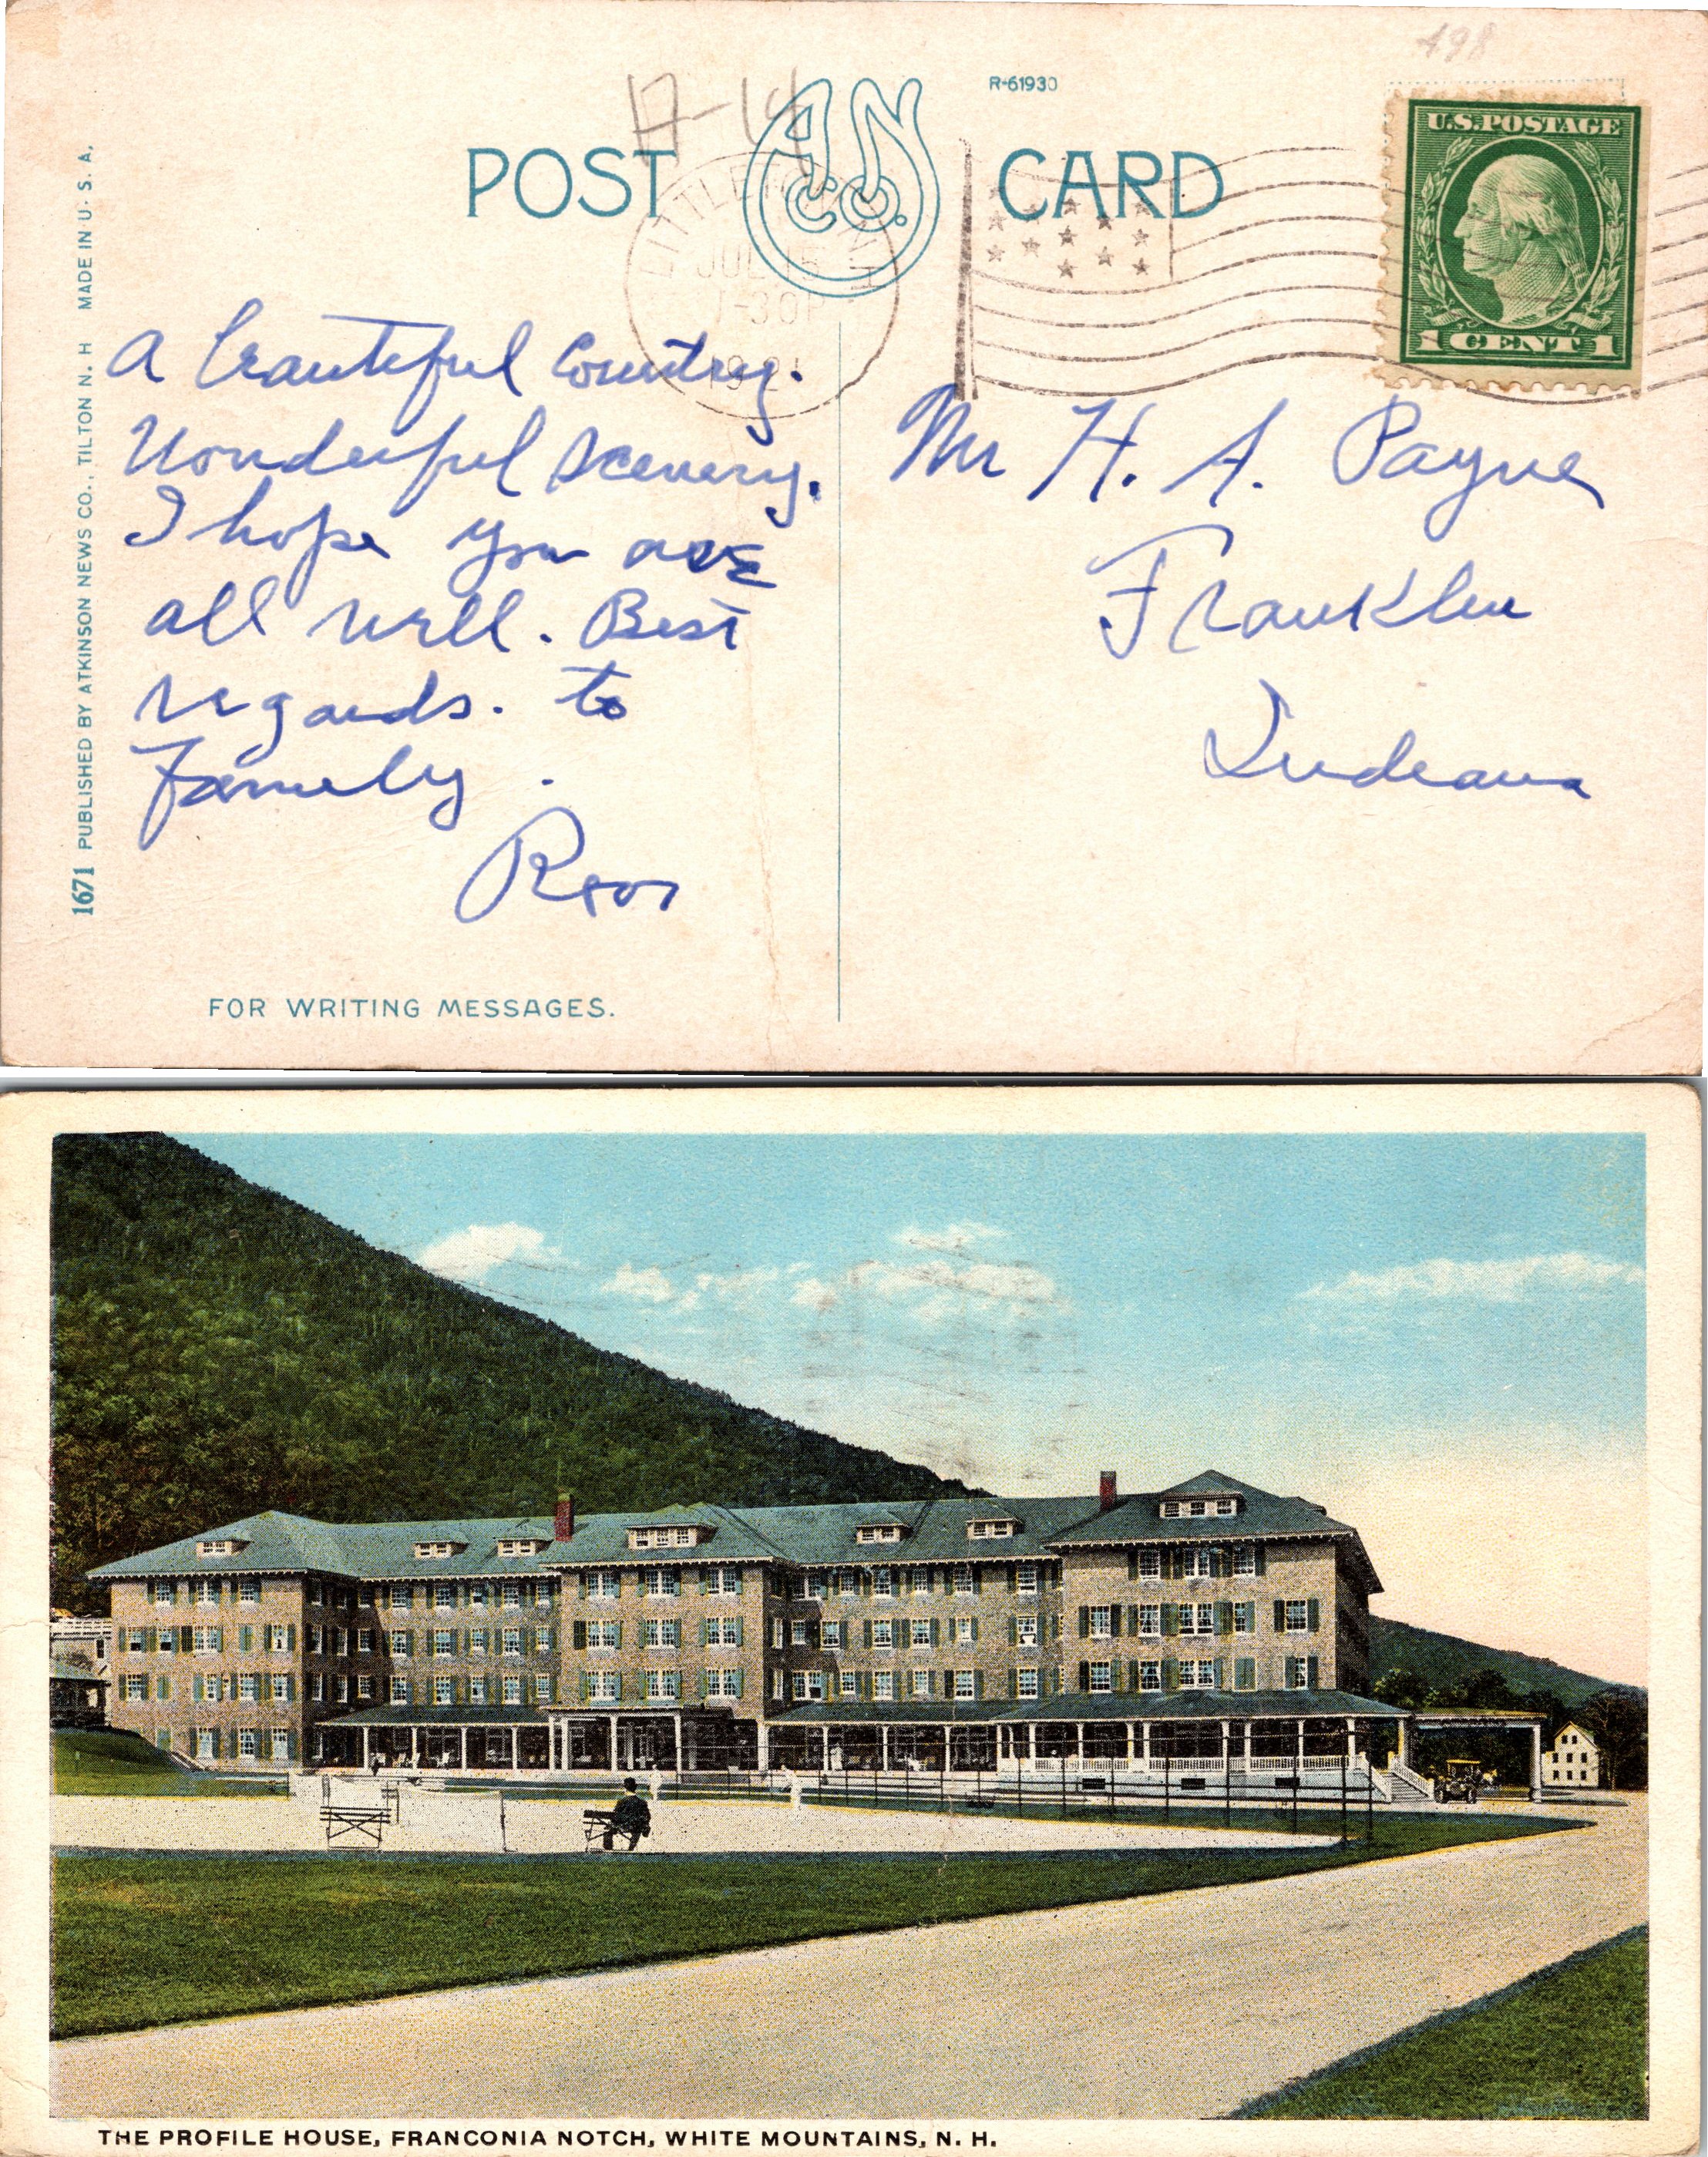 498
R-61930
A-14
POST CARD
A N Co.
LITTLETON N.H.
JUL 15
1-30P
192
U.S. POSTAGE
1 CENT 1
A beautiful Country.
Wonderful Scenery.
I hope you are
all well. Best
regards. to
Family.
Mr H. A. Payne
Franklin
Indiana
FOR WRITING MESSAGES.
1671 PUBLISHED BY ATKINSON NEWS CO., TILTON N. H MADE IN U. S. A.
THE PROFILE HOUSE, FRANCONIA NOTCH, WHITE MOUNTAINS, N. H.